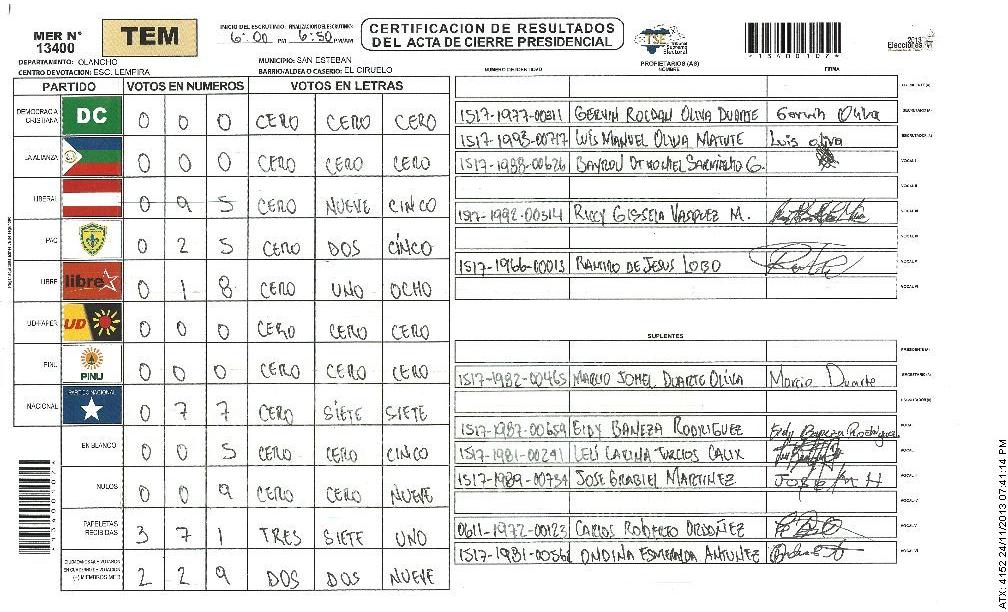 MER N° 13400
TEM
INICIO DEL ESCRUTINIO: FINALIZACION DEL ESCRUTINIO:
6:00 PM 6:50 PM/AM
CERTIFICACION DE RESULTADOS
DEL ACTA DE CIERRE PRESIDENCIAL
TSE
Tribunal Supremo Electoral
*1340010 2*
2013
Elecciones
DEPARTAMENTO: OLANCHO
MUNICIPIO: SAN ESTEBAN
CENTRO DE VOTACION: ESC. LEMPIRA
BARRIO/ALDEA O CASERIO: EL CIRUELO
PARTIDO VOTOS EN NUMEROS VOTOS EN LETRAS
DEMOCRACIA CRISTIANA DC 0 0 0 CERO CERO CERO
LA ALIANZA 0 0 0 CERO CERO CERO
LIBERAL 0 9 5 CERO NUEVE CINCO
PAC 0 2 5 CERO DOS CINCO
LIBRE libre 0 1 8 CERO UNO OCHO
UD-FAPER UD 0 0 0 CERO CERO CERO
PINU PINU 0 0 0 CERO CERO CERO
NACIONAL PARTIDO NACIONAL 0 7 7 CERO SIETE SIETE
EN BLANCO 0 0 5 CERO CERO CINCO
NULOS 0 0 9 CERO CERO NUEVE
PAPELETAS RECIBIDAS 3 7 1 TRES SIETE UNO
CIUDADANOS QUE VOTARON EN CUADERNO DE VOTACION (+) MIEMBROS MER 2 2 9 DOS DOS NUEVE
NUMERO DE IDENTIDAD PROPIETARIOS (AS) NOMBRE FIRMA
PRESIDENTE(A)
1517-1977-00311 GERVIN ROLDAN OLIVA DUARTE Gervin Oliva SECRETARIO(A)
1517-1993-00717 LUIS MANUEL OLIVA MATUTE Luis oliva ESCRUTADOR(A)
1517-1988-00626 BAYRON OTHONIEL SARMIENTO G. VOCAL I
VOCAL II
1517-1992-00514 RICCY GISSELA VASQUEZ M. VOCAL III
VOCAL IV
1517-1966-00013 RAMIRO DE JESUS LOBO VOCAL V
VOCAL VI
SUPLENTES
PRESIDENTE(A)
1517-1982-00465 MARCIO JOMEL DUARTE OLIVA Marcio Duarte SECRETARIO(A)
ESCRUTADOR(A)
1517-1987-00659 EIDY BANEZA RODRIGUEZ Eidy Baneza Rodriguez
1517-1981-00291 LELI CARINA TURCIOS CALIX
1517-1989-00734 JOSE GRABIEL MARTINEZ JOSE M H
VOCAL IV
0611-1972-00123 CARLOS ROBERTO ORDOÑEZ VOCAL V
1517-1981-00562 ONDINA ESMERALDA ANTUNEZ VOCAL VI
ATX: 4152 24/11/2013 07:41:14 PM